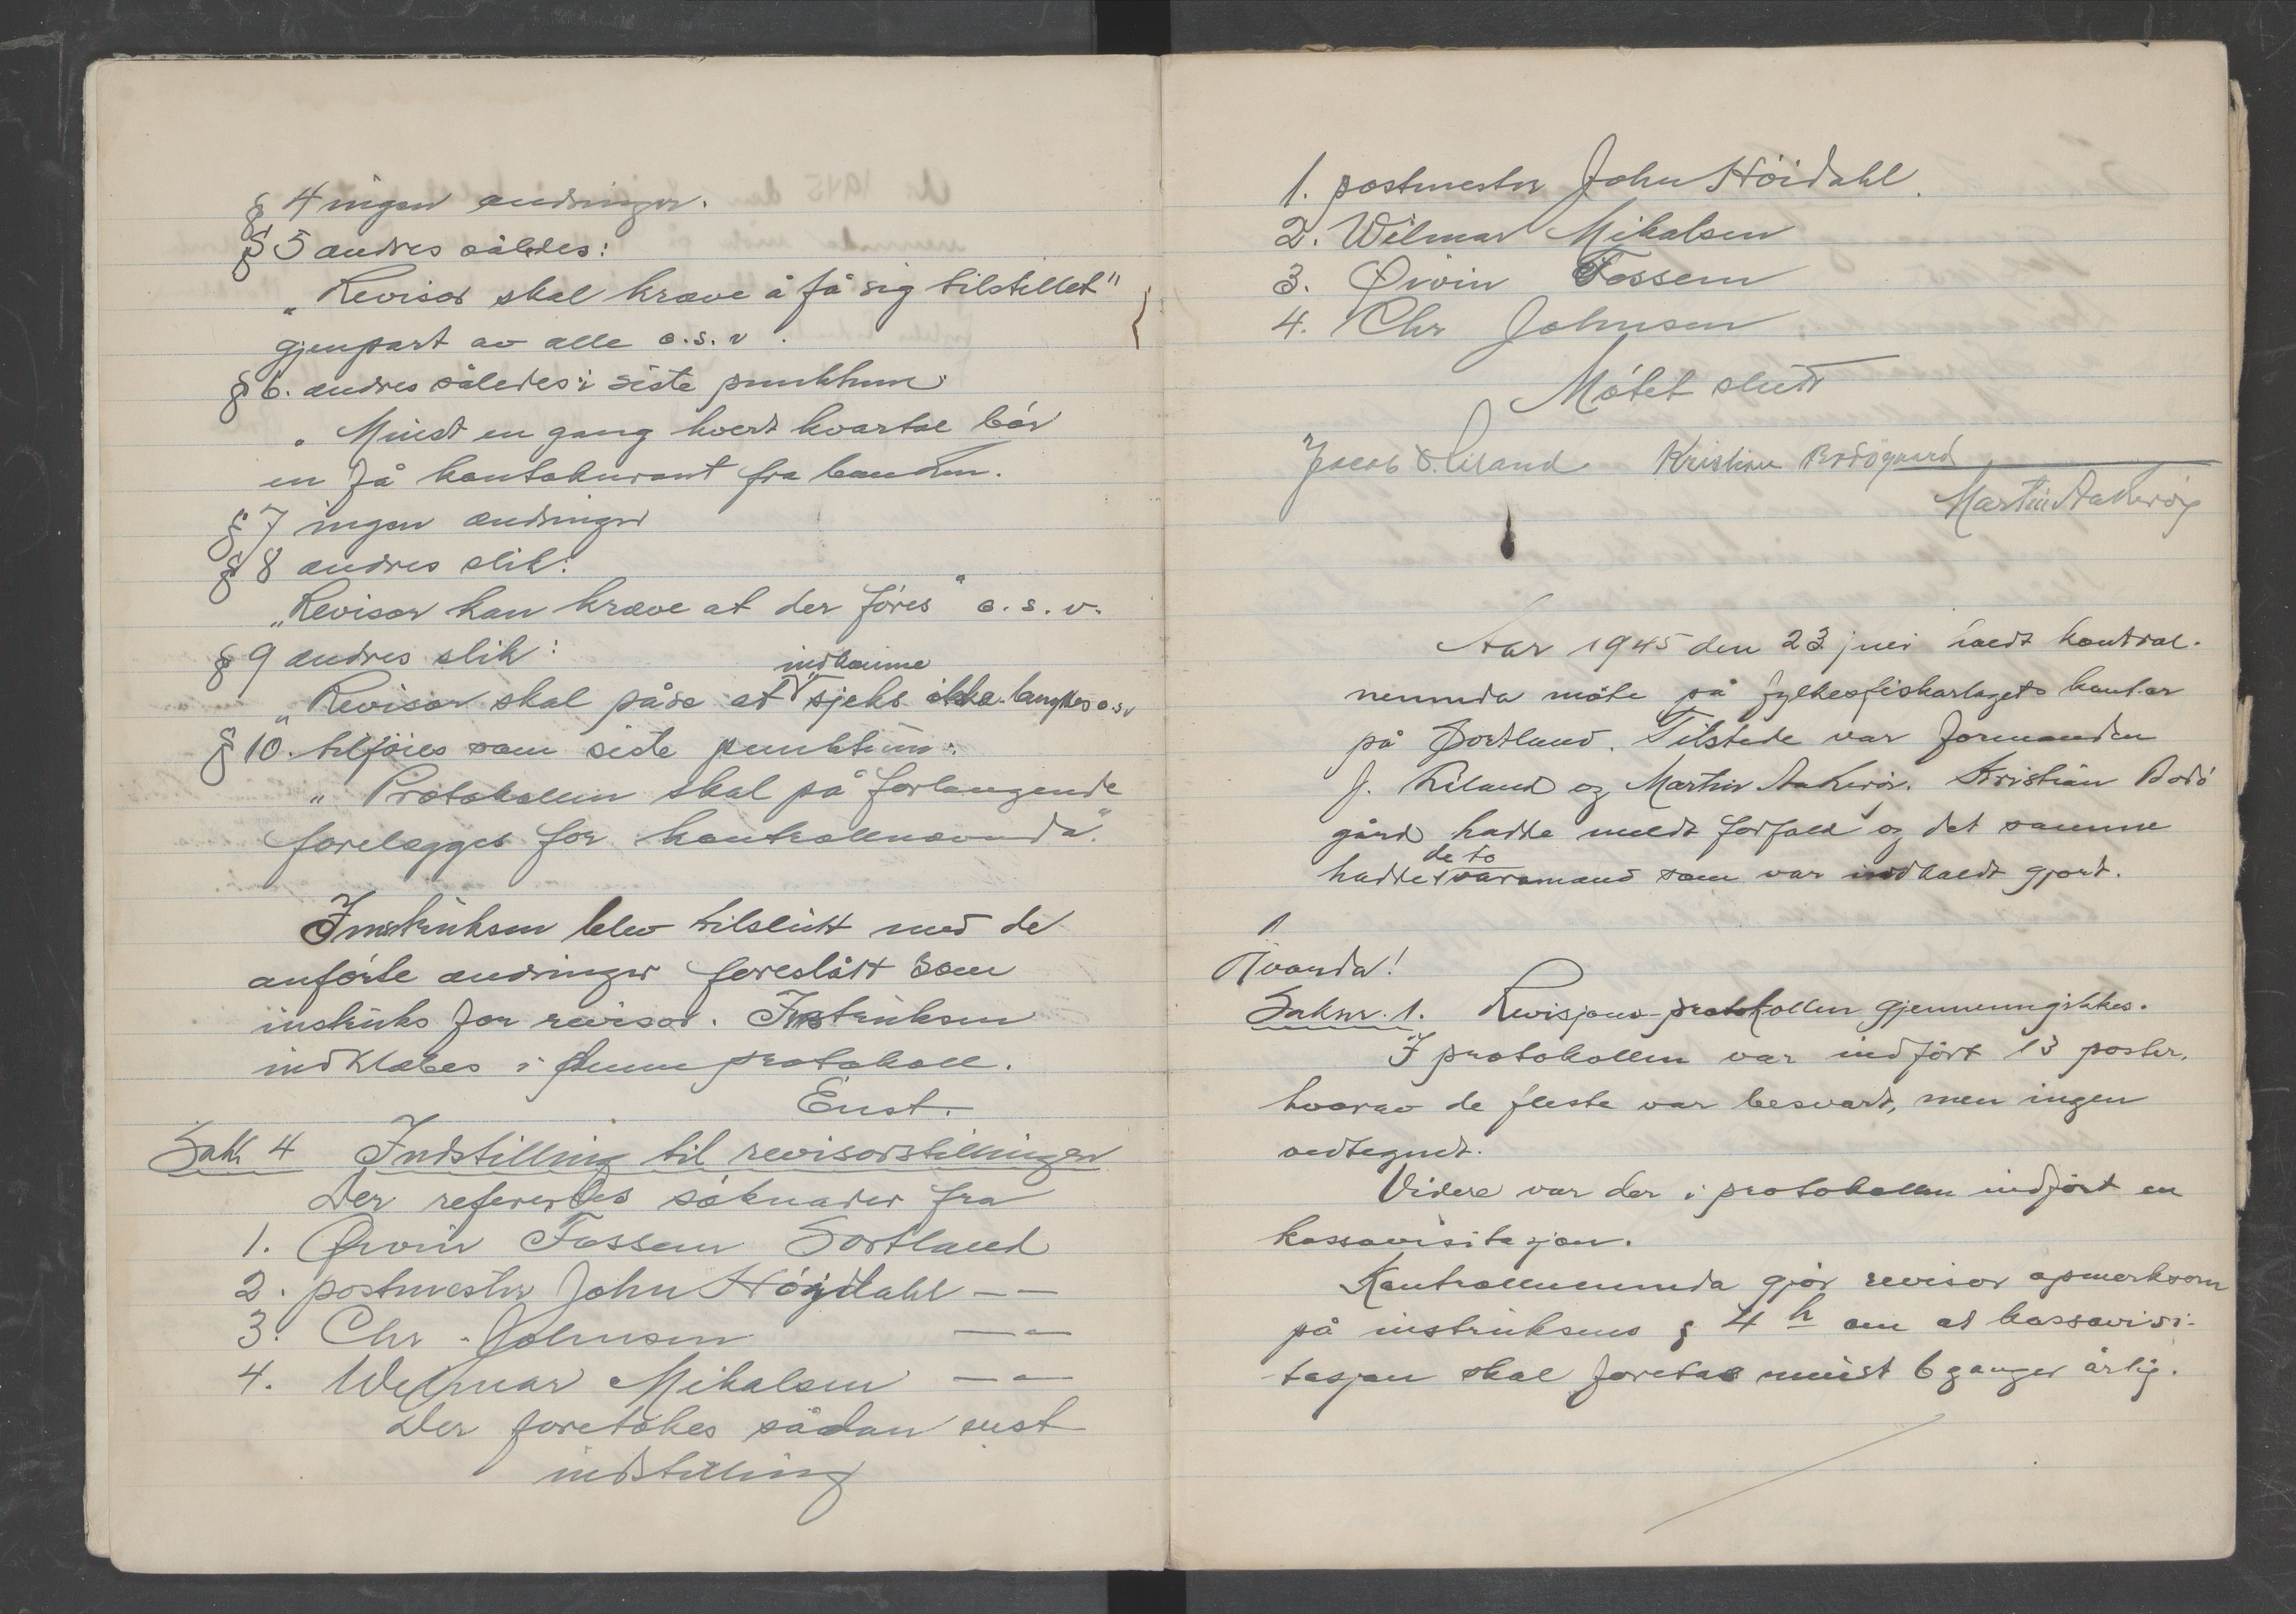 § 4 ingen endringer.
§ 5 endres således:
„Revisor skal kræve å få sig tilstillet"
gjenpart av alle o.s.v.
§ 6. endres således i siste punktum:
„Minst en gang hvert kvartal bør
en få kontokurant fra banken.
§ 7 ingen endringer
§ 8 endres slik:
„Revisor kan kræve at der føres" o.s.v.
§ 9 endres slik:
indkomne
„Revisor skal påse at sjeks ikke o.s.v
§ 10. tilføies som siste punktum:
„Protokollen skal på forlangende
forelægges for kontrollnevnda".
Instruksen blev tilslutt med de
anførte endringer foreslått som
instruks for revisor. Instruksen
indklæbes i denne protokoll.
Enst.
Sak 4 Indstilling til revisorstillingen
Der refererdes søknader fra
1. Øivin Fossem Sortland
2. postmester John Höydahl — —
3. Chr. Johnsen — „ —
4. Wilmar Mikalsen — „ —
Der foretokes sådan enst
indstilling
1. postmester John Höidahl.
2. Wilmar Mikalsen
3. Øivin Fossem
4. Chr Johnsen
Møtet slutt
Jacob Liland Kristian Bodøgaard
Martin Aakerøy
Aar 1945 den 23 juni holdt kontrol-
nemnda møte på fylkesfiskarlagets kontor
på Sortland. Tilstede var formanden
J. Liland og Martin Aakerøi. Kristian Bodø
gård hadde meldt forfald og det samme
de to
hadde varamænd som var indkaldt gjort.
Saknr. 1. Revisjons-protokollen gjennemgikkes.
I protokollen var indført 13 poster,
hvorav de fleste var besvart, men ingen
vedtegnet.
Videre var der i protokollen indført en
kassavisitasjon.
Kontrollnemnda gjør revisor opmerksom
på instruksens § 4 h om at kassavisi-
tasjon skal foretas minst 6 ganger årlig.